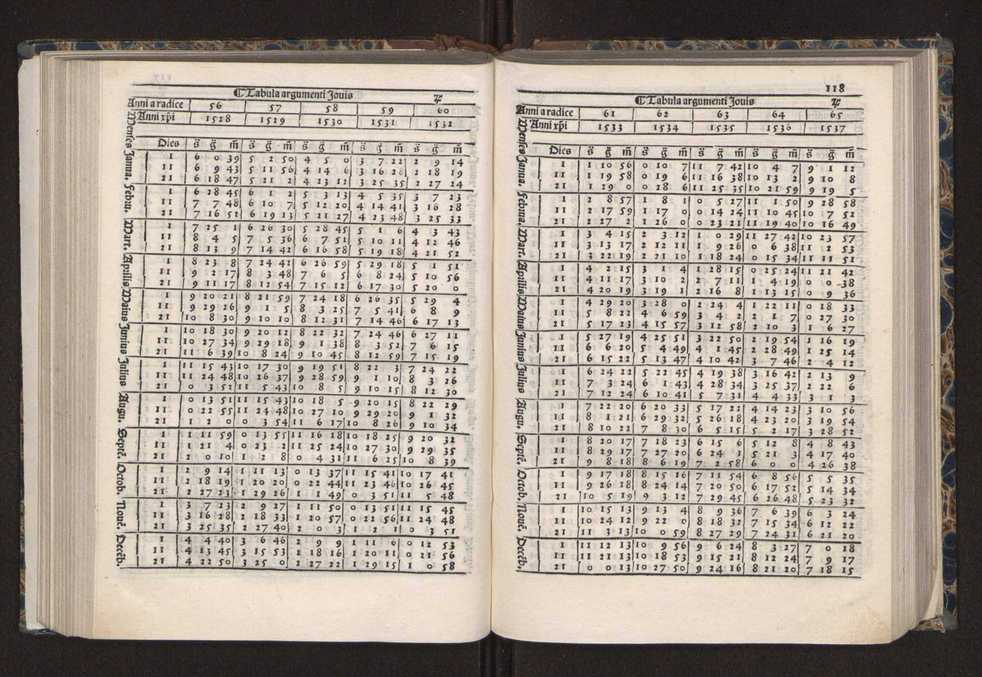 ¶ Tabula argumenti Jovis ♃
Anni a radice 56 57 58 59 60
Anni xp̄i 1528 1529 1530 1531 1532
Dies s̄ ḡ m̄ s̄ ḡ m̄ s̄ ḡ m̄ s̄ ḡ m̄ s̄ ḡ m̄
Janua.
1 6 0 39 5 2 50 4 5 0 3 7 22 2 9 14
11 6 9 43 5 11 56 4 14 6 3 16 28 2 18 19
21 6 18 47 5 21 2 4 23 12 3 25 35 2 27 24
Febru.
1 6 28 45 6 1 2 5 3 13 4 5 35 3 7 23
11 7 7 48 6 10 7 5 12 20 4 14 41 3 16 28
21 7 16 51 6 19 13 5 21 27 4 23 48 3 25 33
Mar.
1 7 25 1 6 26 30 5 28 45 5 1 6 4 3 43
11 8 4 5 7 5 36 6 7 51 5 10 11 4 12 46
21 8 13 9 7 14 42 6 16 58 5 19 18 4 21 52
Aprilis
1 8 23 8 7 24 41 6 26 59 5 29 18 5 1 51
11 9 2 17 8 3 48 7 6 5 6 8 24 5 10 56
21 9 11 17 8 12 54 7 15 12 6 17 30 5 20 0
Maius
1 9 20 21 8 21 59 7 24 18 6 26 35 5 29 4
11 9 29 26 9 1 5 8 3 25 7 5 41 6 8 9
21 10 8 30 9 10 10 8 12 31 7 14 46 6 17 13
Junius
1 10 18 30 9 20 12 8 22 32 7 24 46 6 27 11
11 10 27 34 9 29 18 9 1 38 8 3 52 7 6 15
21 11 6 39 10 8 24 9 10 45 8 12 59 7 15 19
Julius
1 11 15 43 10 17 30 9 19 51 8 22 3 7 24 22
11 11 24 48 10 26 37 9 28 59 9 1 10 8 3 26
21 0 3 51 11 5 43 10 8 5 9 10 15 8 12 30
Augu.
1 0 13 51 11 15 43 10 18 5 9 20 15 8 22 29
11 0 22 55 11 24 48 10 27 10 9 29 20 9 1 32
21 1 2 0 0 3 54 11 6 17 10 8 26 9 10 34
Septē.
1 1 11 59 0 13 55 11 16 18 10 18 25 9 20 32
11 1 21 4 0 23 2 11 25 24 10 27 30 9 29 35
21 2 0 10 1 2 8 0 4 31 11 6 25 10 8 39
Octob.
1 2 9 14 1 11 13 0 13 37 11 15 41 10 17 41
11 2 18 19 1 20 20 0 22 44 11 23 46 10 26 45
21 2 27 23 1 29 26 1 1 49 0 3 51 11 5 48
Novē.
1 3 7 23 2 9 27 1 11 50 0 13 51 11 15 45
11 3 16 28 2 18 33 1 20 57 0 22 56 11 24 48
21 3 25 35 2 27 40 2 0 3 1 2 1 0 3 51
Decēb.
1 4 4 40 3 6 46 2 9 9 1 11 6 0 12 53
11 4 13 45 3 15 53 2 18 16 1 20 11 0 21 56
21 4 22 50 3 25 0 2 27 22 1 29 15 1 0 58
118
¶ Tabula argumenti Jovis ♃
Anni a radice 61 62 63 64 65
Anni xp̄i 1533 1534 1535 1536 1537
Menses Dies s̄ ḡ m̄ s̄ ḡ m̄ s̄ ḡ m̄ s̄ ḡ m̄ s̄ ḡ m̄
Janua.
1 1 10 56 0 10 7 11 7 42 10 4 7 9 1 12
11 1 19 58 0 19 6 11 16 38 10 13 2 9 10 8
21 1 29 0 0 28 6 11 25 35 10 21 59 9 19 5
Februa.
1 2 8 57 1 8 1 0 5 27 11 1 50 9 28 58
11 2 17 59 1 17 0 0 14 24 11 10 45 10 7 52
21 2 27 2 1 26 0 0 23 21 11 19 40 10 16 49
Mar.
1 3 4 15 2 3 12 1 0 29 11 27 42 10 23 57
11 3 13 17 2 12 11 1 9 26 0 6 38 11 2 53
21 3 22 19 2 21 10 1 18 24 0 15 34 11 11 51
Aprilis
1 4 2 15 3 1 4 1 28 15 0 25 24 11 21 42
11 4 11 17 3 10 2 2 7 11 1 4 19 0 0 38
21 4 20 19 3 19 1 2 16 8 1 13 15 0 9 36
Maius
1 4 29 20 3 28 0 2 24 4 1 22 11 0 18 33
11 5 8 22 4 6 59 3 4 2 2 1 7 0 27 30
21 5 17 23 4 15 57 3 12 58 2 10 3 1 6 27
Junius
1 5 27 19 4 25 51 3 22 50 2 19 54 1 16 19
11 6 6 20 5 4 49 4 1 45 2 28 49 1 25 14
21 6 15 22 5 13 47 4 10 42 3 7 46 2 4 12
Julius
1 6 24 22 5 22 45 4 19 38 3 16 42 2 13 9
11 7 3 24 6 1 43 4 28 34 3 25 37 2 22 6
21 7 12 24 6 10 41 5 7 31 4 4 33 3 1 3
Augu.
1 7 22 20 6 20 33 5 17 22 4 14 23 3 10 56
11 8 1 21 6 29 32 5 26 18 4 23 20 3 19 54
21 8 10 22 7 8 30 6 5 15 5 2 17 3 28 52
Septē.
1 8 20 17 7 18 23 6 15 6 5 12 8 4 8 43
11 8 29 17 7 27 20 6 24 3 5 21 3 4 17 40
21 9 8 18 8 6 19 7 2 58 6 0 0 4 26 38
Octob.
1 9 17 18 8 15 16 7 11 54 6 8 56 5 5 35
11 9 26 18 8 24 14 7 20 50 6 17 52 5 14 34
21 10 5 19 9 3 12 7 29 45 6 26 48 5 23 32
Novē.
1 10 15 13 9 13 4 8 9 36 7 6 39 6 3 24
11 10 24 12 9 22 0 8 18 32 7 15 34 6 12 22
21 11 3 13 10 0 59 8 27 29 7 24 31 6 21 20
Decēb.
1 11 12 13 10 9 56 9 6 24 8 3 27 7 0 18
11 11 21 13 10 18 53 9 15 21 8 12 24 7 9 17
21 0 0 13 10 27 50 9 24 16 8 21 20 7 18 15